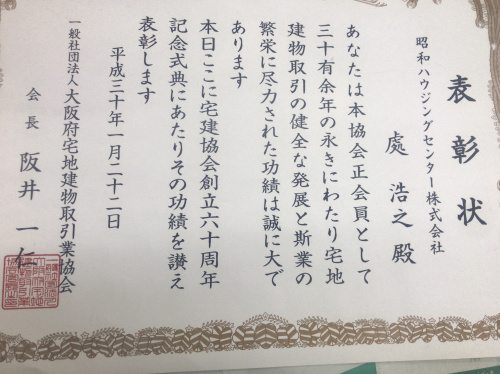 表彰状
昭和ハウジングセンター株式会社
處 浩之 殿
あなたは本協会正会員として
三十有余年の永きにわたり宅地
建物取引の健全な発展と斯業の
繁栄に尽力された功績は誠に大で
あります
本日ここに宅建協会創立六十周年
記念式典にあたりその功績を讃え
表彰します
平成三十年一月二十二日
一般社団法人 大阪府宅地建物取引業協会
会長 阪井 一仁